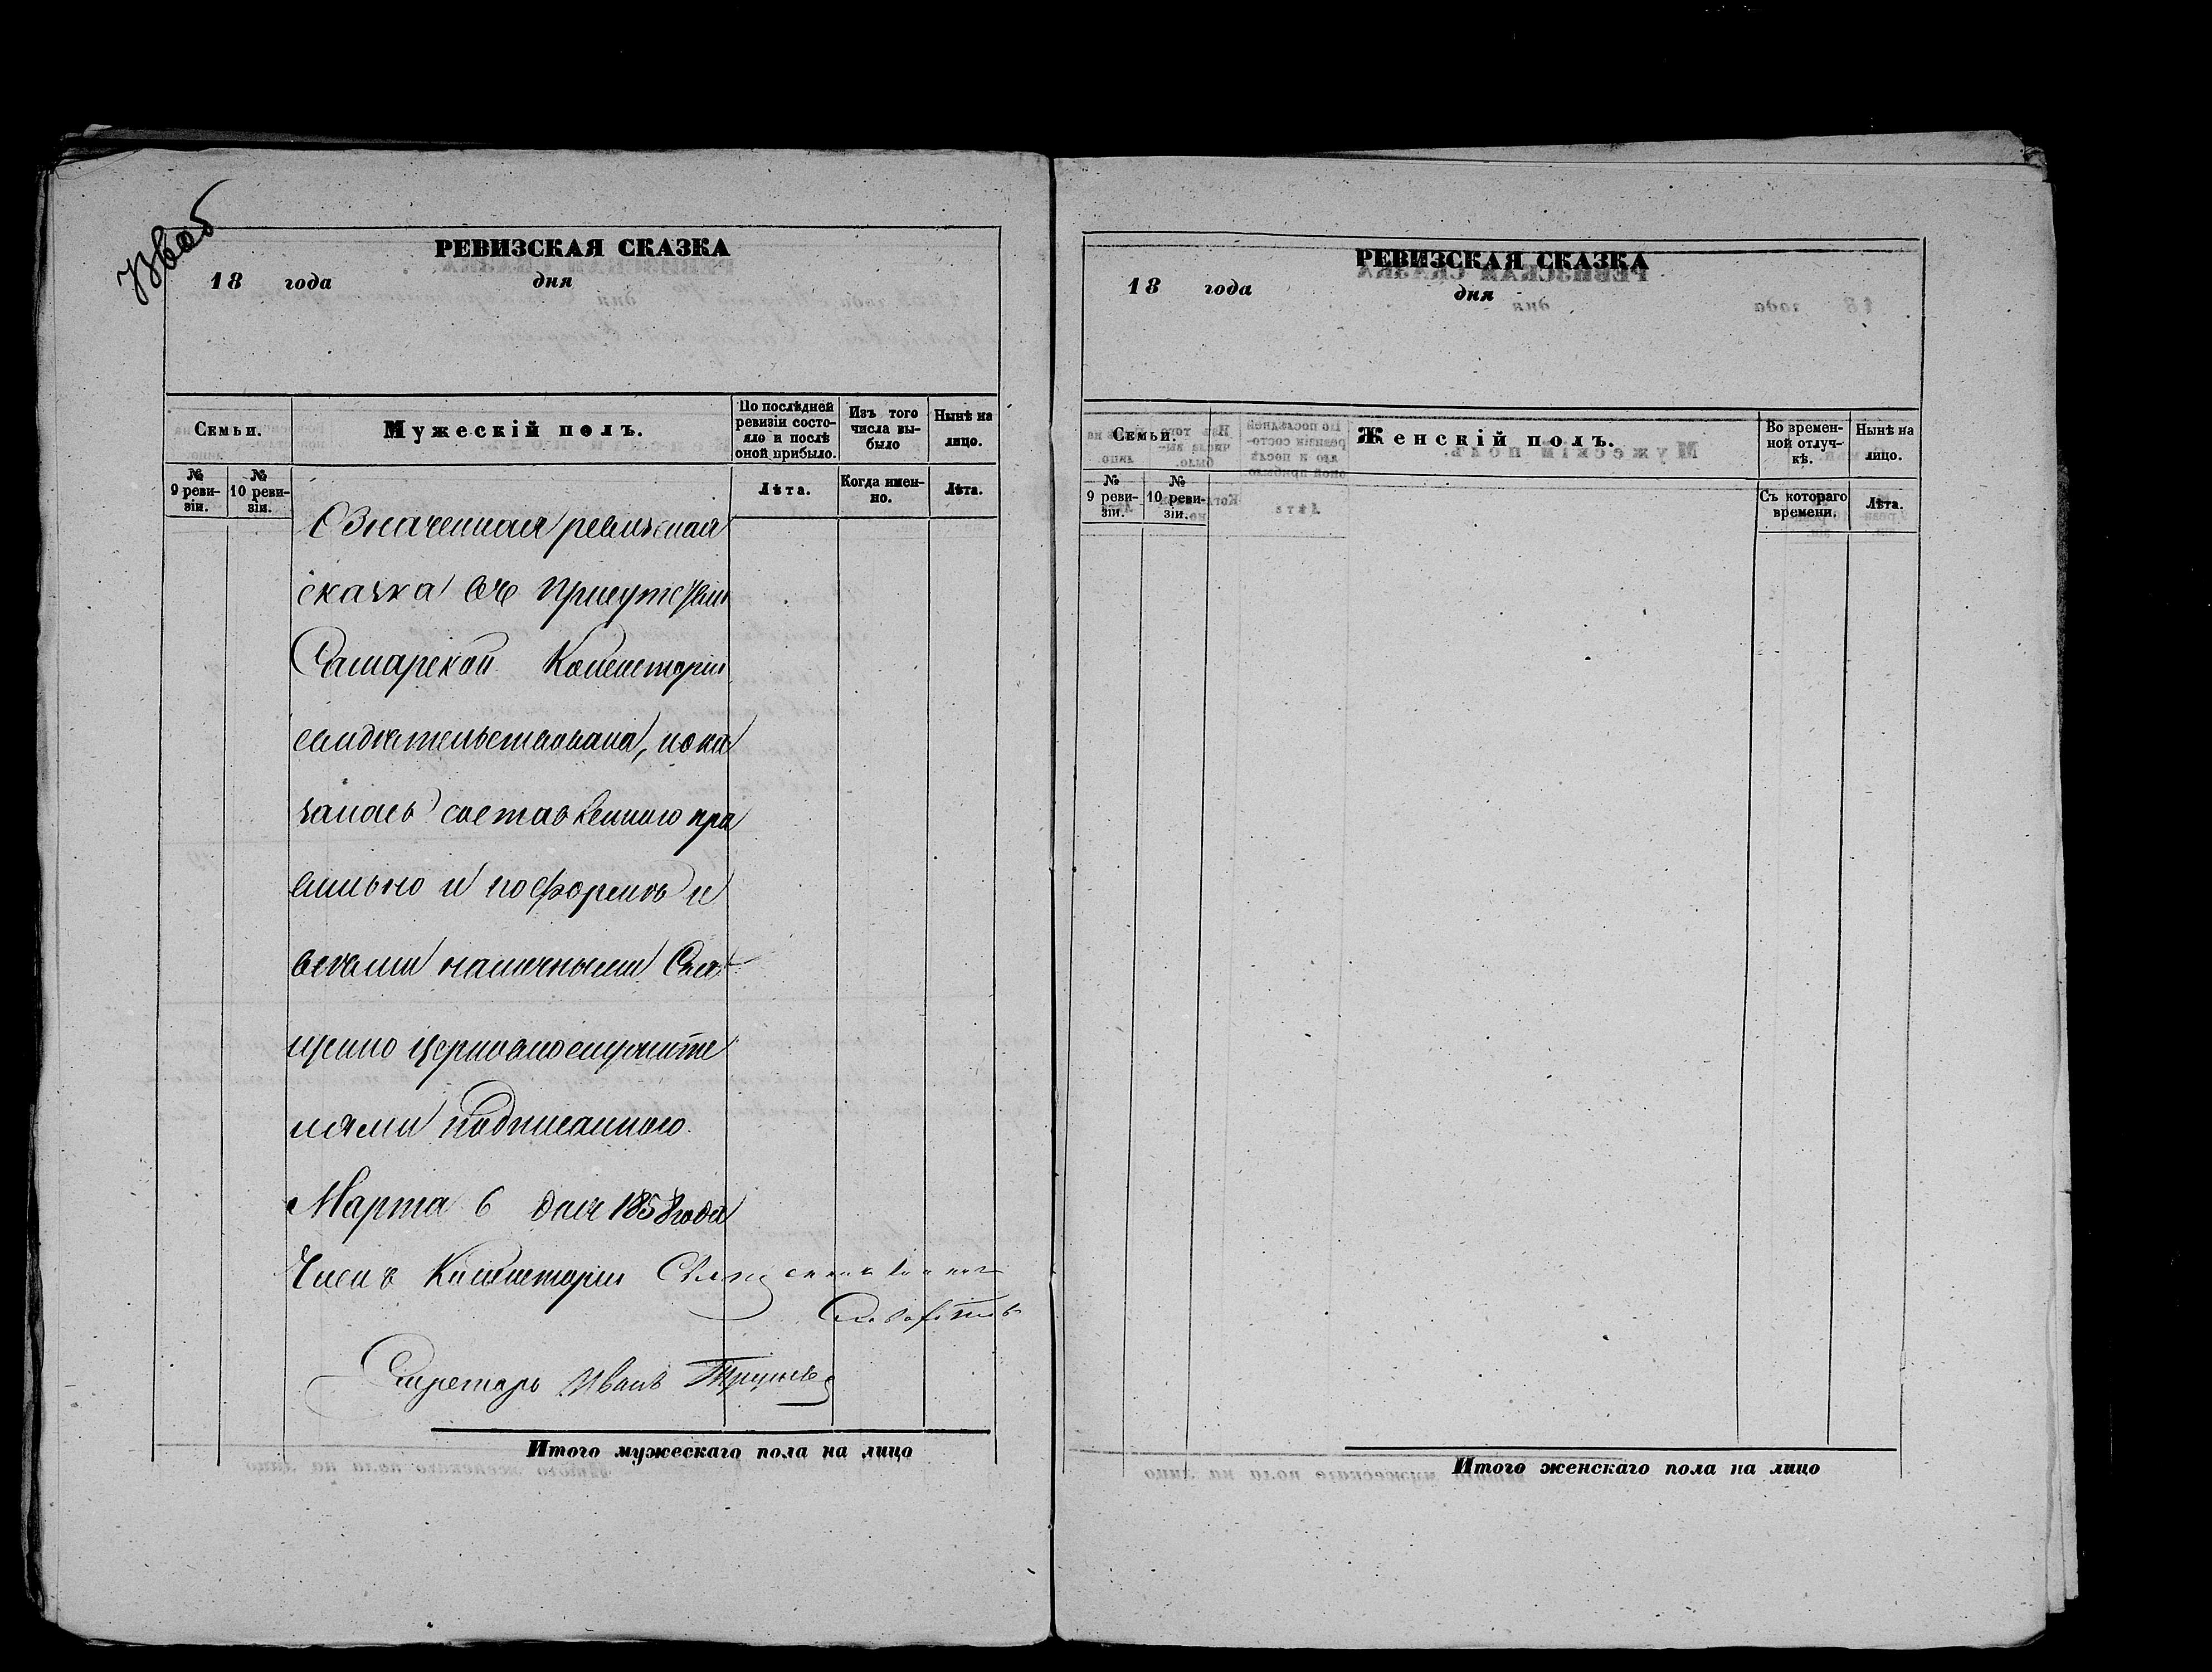 РЕВИЗСКАЯ СКАЗКА
18 года дня
Семьи.
Мужескій полъ.
По послѣдней ревизіи состояло и послѣ оной прибыло.
Изъ того числа выбыло
Нынѣ на лицо.
№ 9 ревизіи.
№ 10 ревизіи.
Лѣта.
Когда именно.
Лѣта.
Означенная ревизская
сказка въ присутствіи
Самарской Консисторіи
свидѣтельствована, пока
залась составленною пра
вильно и по формѣ и
всѣми наличными Свя
щенно церковнослужите
лями подписанною.
Марта 6 дня 1858 года
Членъ Консисторіи Священникъ
Секретарь Иванъ
Итого мужескаго пола на лицо
РЕВИЗСКАЯ СКАЗКА
18 года дня
Семьи.
Женскій полъ.
Во временной отлучкѣ.
Нынѣ на лицо.
№ 9 ревизіи.
№ 10 ревизіи.
Съ котораго времени.
Лѣта.
Итого женскаго пола на лицо